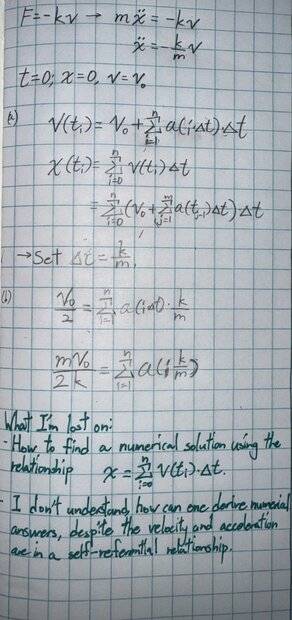 F=-kv → mẍ=-kv
ẍ=-k/m v
t=0; x=0, v=v₀
(a) V(tᵢ)=V₀+∑ⁿᵢ₌₁ a(i·Δt)·Δt
x(tᵢ)=∑ⁿᵢ₌₀ V(tᵢ)Δt
=∑ⁿᵢ₌₀(V₀+∑ᵐⱼ₌₁ a(tⱼ₋₁)Δt)·Δt
→Set Δt=k/m,
(b) V₀/2=∑ⁿᵢ₌₁ a(iΔt)·k/m
mV₀/2k=∑ⁿᵢ₌₁ a(i k/m)
What I'm lost on:
- How to find a numerical solution using the
relationship x=∑ⁿᵢ₌₀ V(tᵢ)·Δt.
- I don't understand, how can one derive numerial
answers, despite the velocity and acceleration
are in a self-referential relationship.